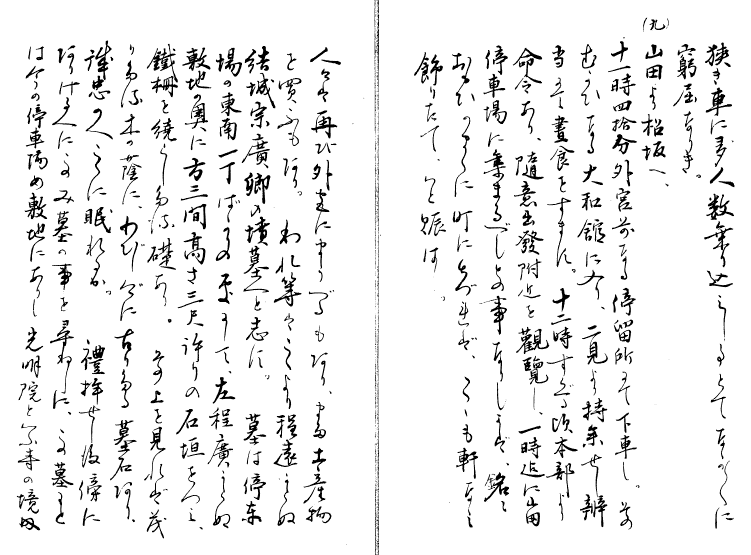 狭き車に多人数乗り込みしことゝてなか〳〵に
窮屈なりき。
(九)
山田より松坂へ、
十一時四拾分外宮前なる停留所にて下車し。前
なる大和舘に入り、二見より持参せし辨
当にて晝食をすます。十二時すぐる頃本部より
命令あり、随意出發附近を觀覽し、一時迄に山田
停車場に集まるべしとの事なりしかば、銘々
町に出づれば、こゝも軒なみ
飾りたて、いと賑はし。
人々は再び外宮にまうづるもあり、土産物
を買ふもあり。われ等はこゝより程遠からぬ
結城宗廣卿の墳墓へと志す。墓は停車
場の東南一丁ばかりの所にて、左程廣からぬ
敷地の奥に方三間高さ三尺許りの石垣をつみ、
鐵柵を繞らしたる礎あり。その上を見れば茂
りたる木の蔭に、わびしげに古りたる墓石あり、
誠忠の人こゝに眠れるか。禮拝せし後傍に
ありける人にこのみ墓の事を尋ねしに、この墓もと
は今の停車場の敷地にありし光明院と云ふ寺の境内